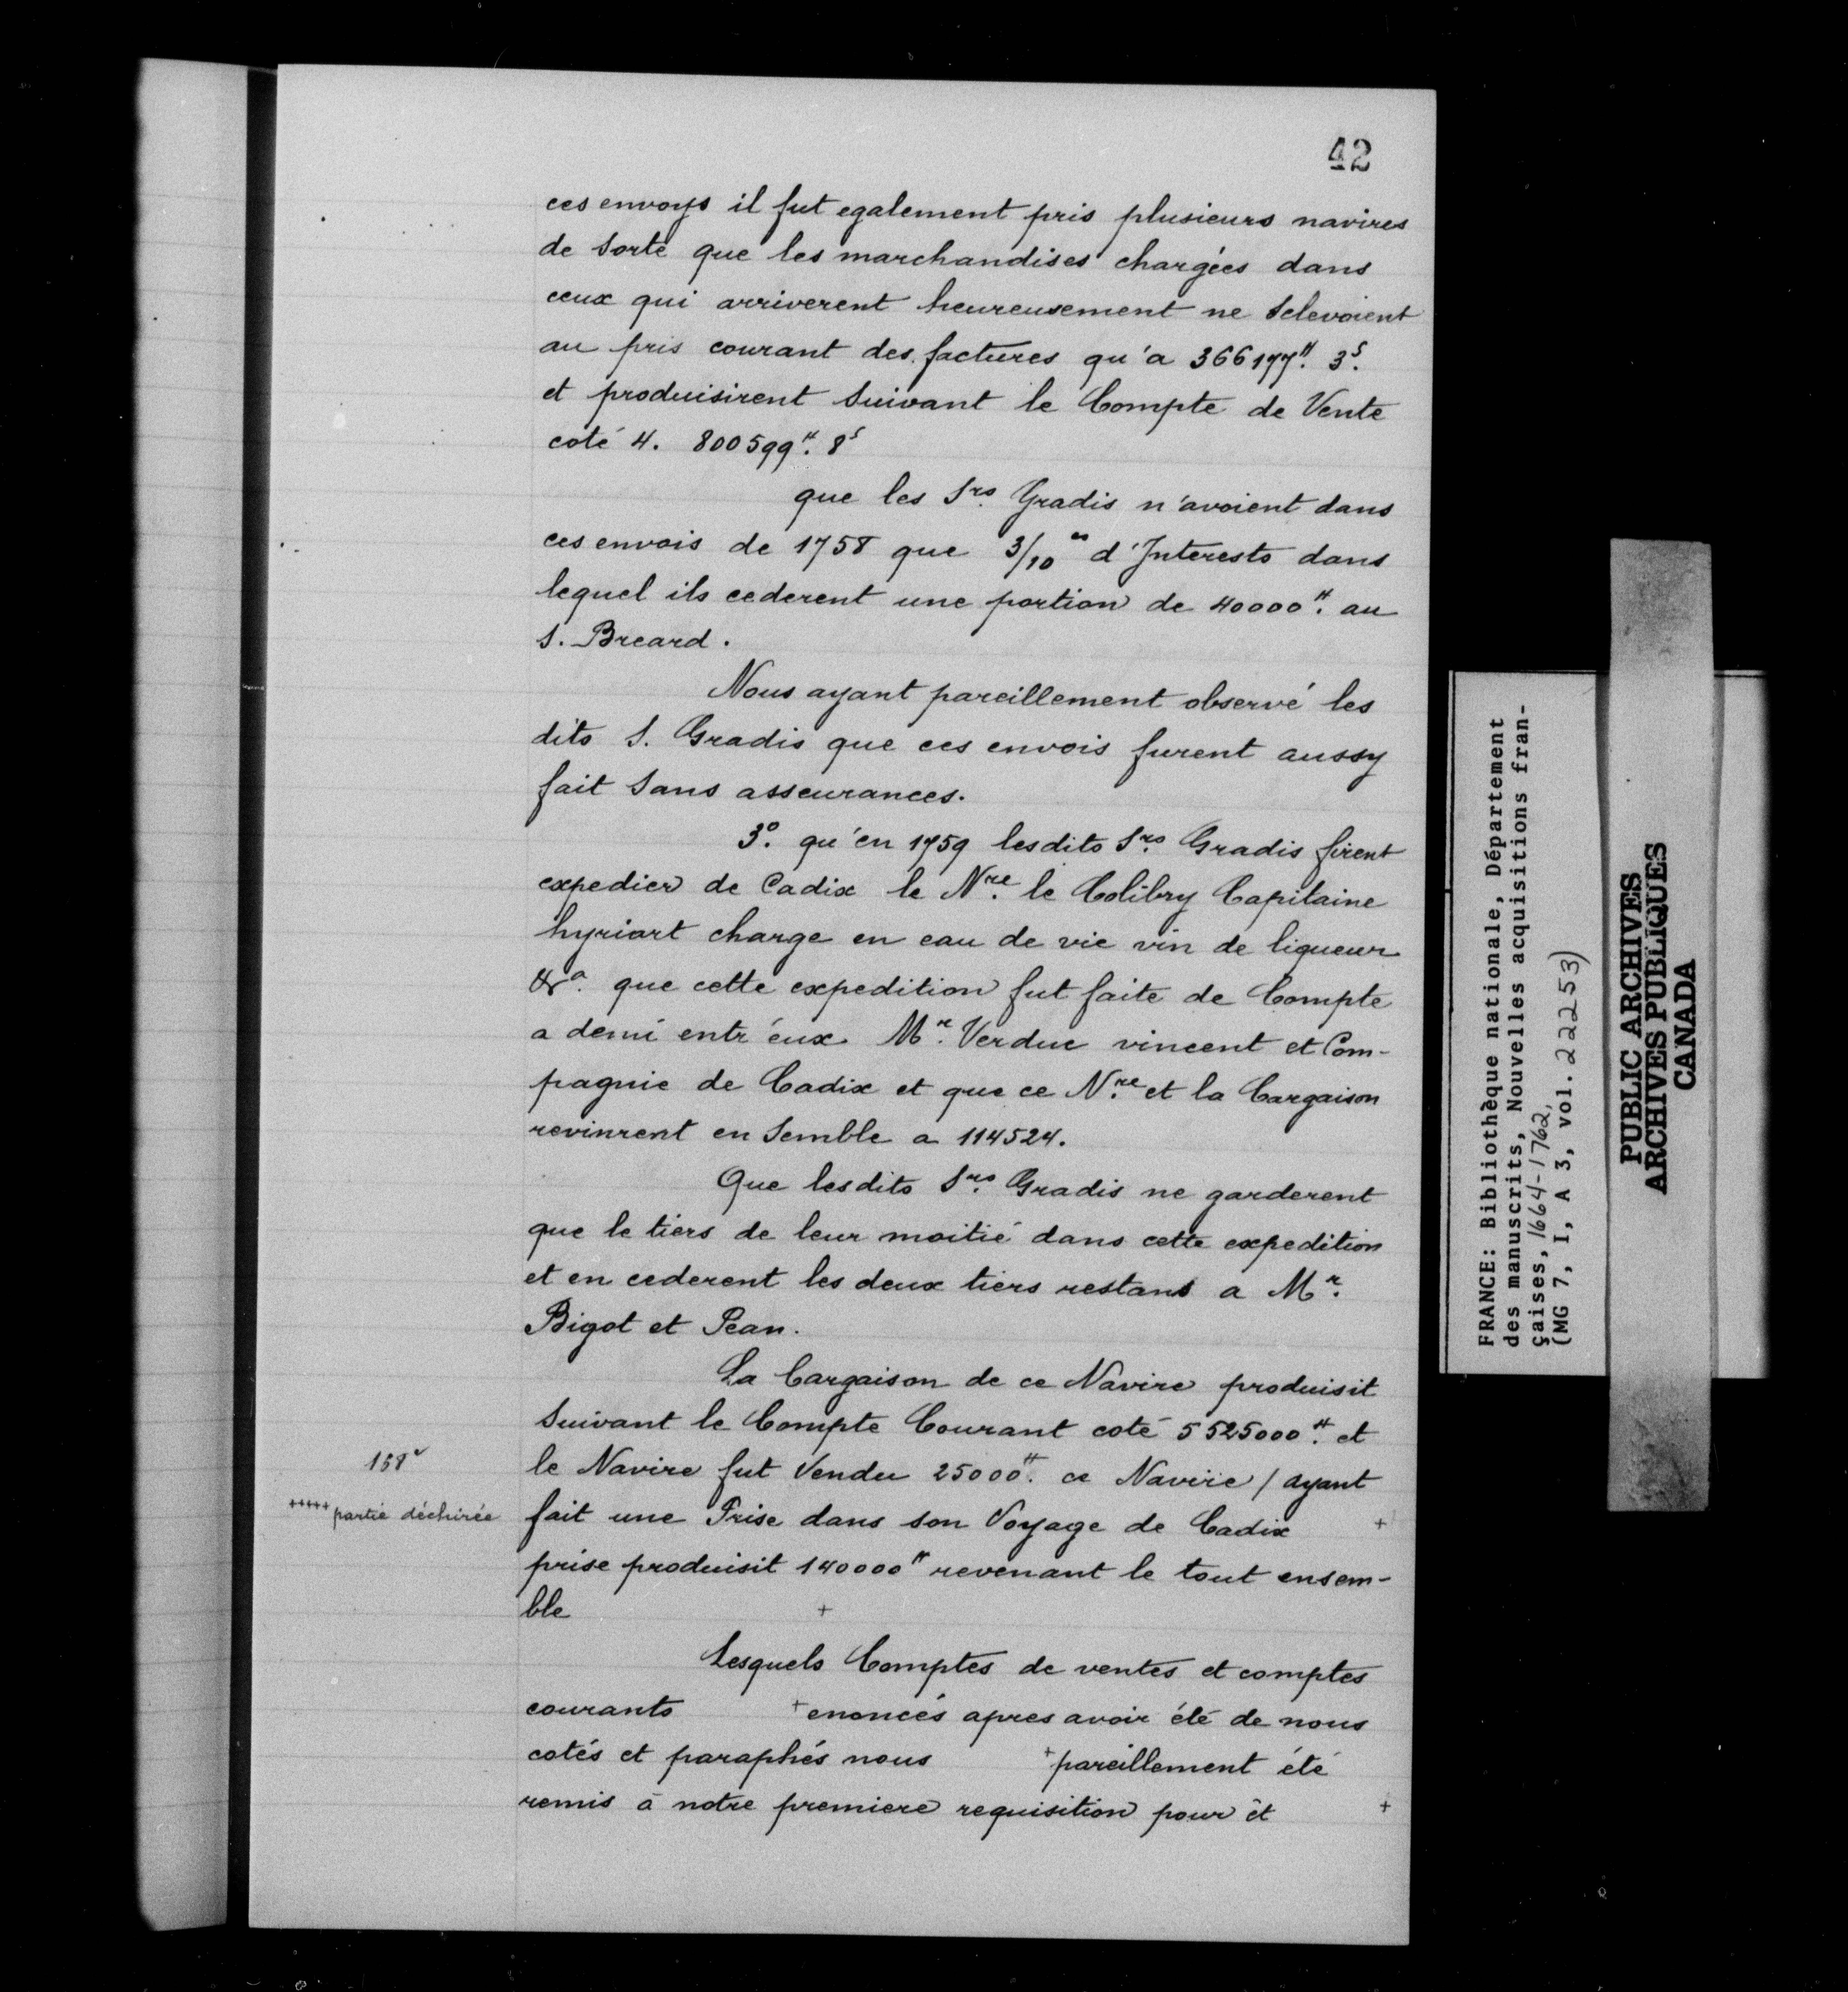 42
ces envoys il fut egalement pris plusieurs navires
de Sorte que les marchandises chargées dans
ceux qui arriverent heureusement ne Selevoient
au pris courant des factures qu'a 366177tt. 3s.
et produisirent Suivant le Compte de Vente
coté 4. 800599tt. 8s
que les Srs. Gradis n'avoient dans
ces envois de 1758 que 3/10es d'Interests dans
lequel ils cederent une portion de 40000tt. au
S. Breard.
Nous ayant pareillement observé les
dits S. Gradis que ces envois furent aussy
fait Sans asseurances.
3o. qu'en 1759 lesdits Srs. Gradis firent
expedier de Cadix le Nre. le Colibry Capitaine
hyriart charge en eau de vie vin de liqueur
&a. que cette expedition fut faite de Compte
a demi entr'eux Mr. Verduc vincent et Com-
pagnie de Cadix et que ce Nre. et la Cargaison
revinrent en Semble a 114524.
Que lesdits Srs. Gradis ne garderent
que le tiers de leur moitié dans cette expedition
et en cederent les deux tiers restans a Mr.
Bigot et Pean.
La Cargaison de ce Navire produisit
Suivant le Compte Courant coté 5 525000tt. et
158v
le Navire fut Vendu 25000tt. ce Navire / ayant
+++++ partie déchirée
fait une Prise dans son Voyage de Cadix +
prise produisit 140000tt revenant le tout ensem-
ble +
Lesquels Comptes de ventes et comptes
courants + enoncés apres avoir été de nous
cotés et paraphés nous + pareillement été
remis à notre premiere requisition pour êt +
FRANCE: Bibliothèque nationale, Département
des manuscrits, Nouvelles acquisitions fran-
çaises, 1664-1762,
(MG 7, I, A 3, vol. 22253)
PUBLIC ARCHIVES
ARCHIVES PUBLIQUES
CANADA